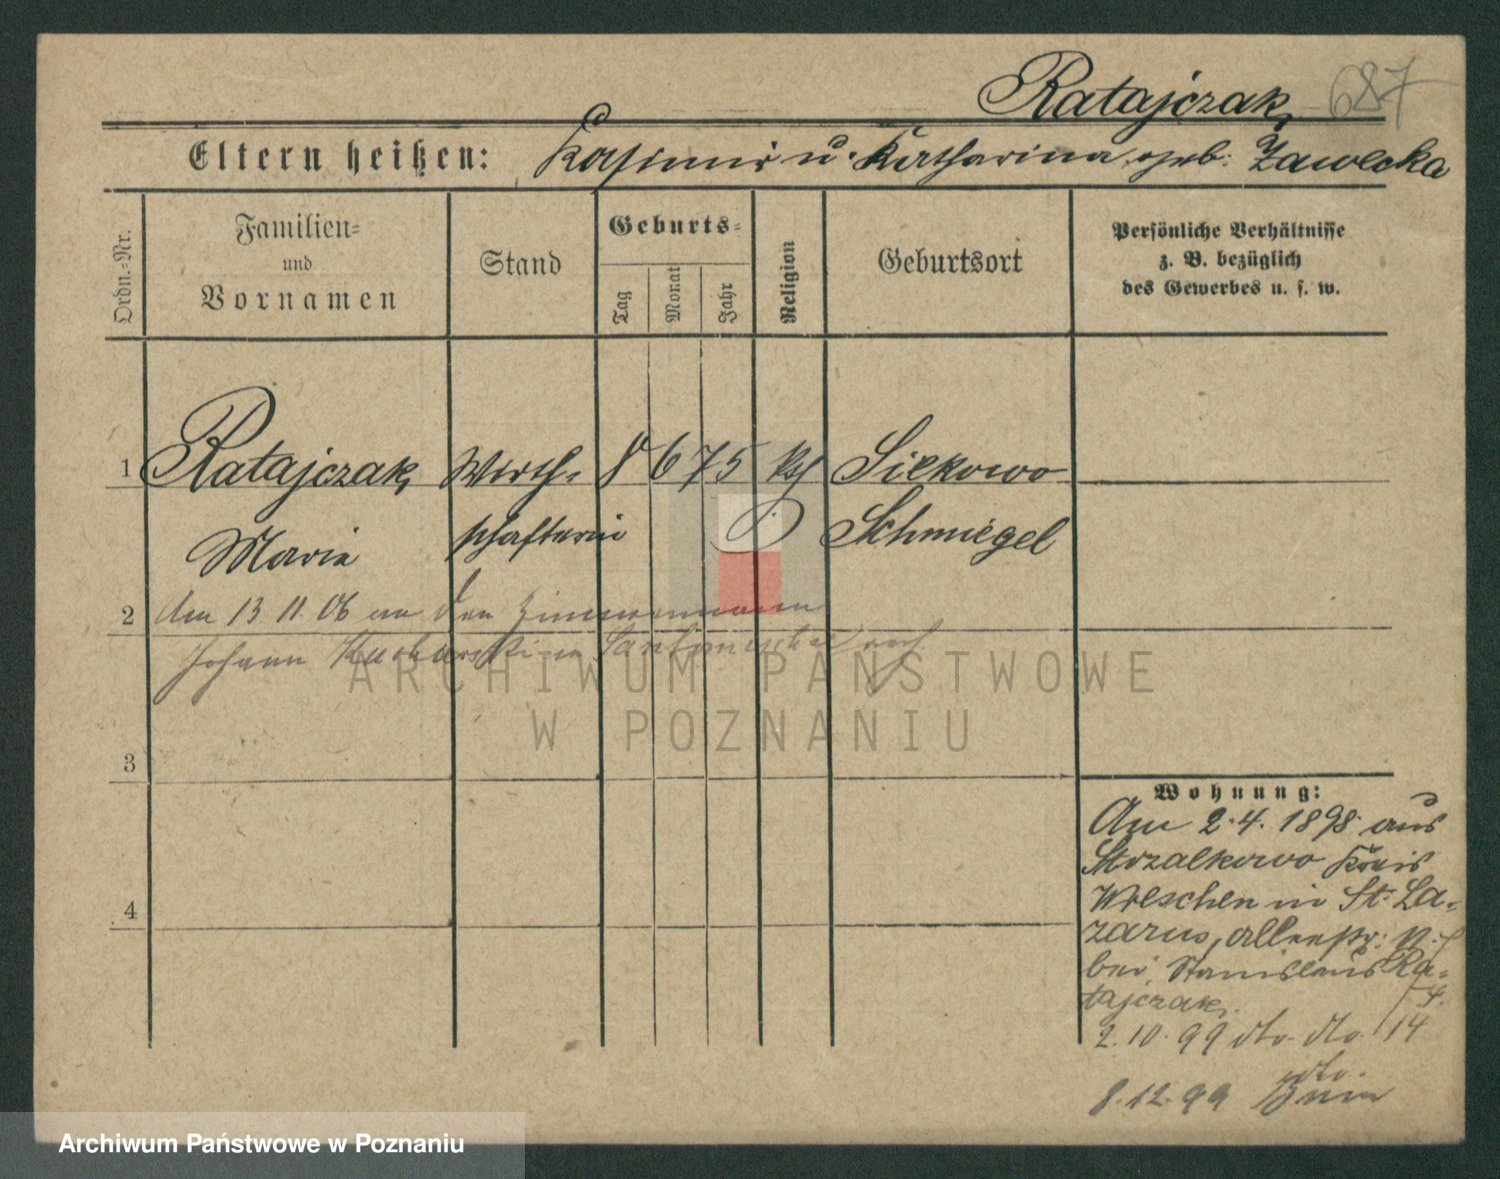 Ratajczak, 687
Eltern heißen: Kasimir u. Katharina geb. Zawecka
Ordn.-Nr.
Familien-
und
Vornamen
Stand
Geburts-
Tag
Monat
Jahr
Religion
Geburtsort
Persönliche Verhältnisse
z. B. bezüglich
des Gewerbes u. s. w.
1 Ratajczak, Wirth- 8 6 75 kth Siekowo
Marie schafterin Schmiegel
2 Am 13 11 06 an den Zimmermann
Johann
3
4
Wohnung:
Am 2.4.1898 aus
Strzalkowo Kreis
Wreschen in St. La-
zarus, Allerstr.
bei Stanislaus Ra-
tajczak,
2.10.99 dto. dto. 14
dto.
8.12.99
ARCHIWUM PAŃSTWOWE
W POZNANIU
Archiwum Państwowe w Poznaniu